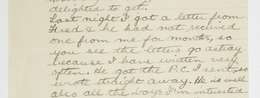 delighted to get.
Last night I got a letter from
Fred & he had not received
one from me for months, so
you see the letters go astray
because I have written very
often. He got the P.C. I sent, so
wrote straight away. He is well
also all the boys I'm interested